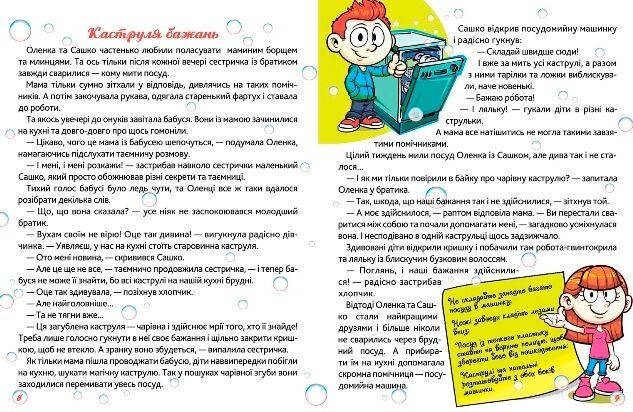 Каструля бажань
Оленка та Сашко частенько любили поласувати маминим борщем
та млинцями. Та ось тільки після кожної вечері сестричка із братиком
завжди сварилися — кому мити посуд.
Мама тільки сумно зітхали у відповідь, дивлячись на таких поміч-
ників. А потім закочувала рукава, одягала старенький фартух і ставала
до роботи.
Та якось увечері до онуків завітала бабуся. Вони із мамою зачинилися
на кухні та довго-довго про щось гомоніли.
— Цікаво, чого це мама із бабусею шепочуться, — подумала Оленка,
намагаючись підслухати таємничу розмову.
— І мені, і мені розкажи! — застрибав навколо сестрички маленький
Сашко, який просто обожнював різні секрети та таємниці.
Тихий голос бабусі було ледь чути, та Оленці все ж таки вдалося
розібрати декілька слів.
— Що, що вона сказала? — усе ніяк не заспокоювався молодший
братик.
— Вухам своїм не вірю! Оце так дивина! — вигукнула радісно дів-
чинка. — Уявляєш, у нас на кухні стоїть старовинна каструля.
— Ото мені новина, — скривився Сашко.
— Але це ще не все, — таємничо продовжила сестричка, — і тепер ба-
буся не може її знайти, бо всі каструлі на нашій кухні брудні.
— Оце так здивувала, — позіхнув хлопчик.
— Але найголовніше...
— Та не тягни вже...
— Ця загублена каструля — чарівна і здійснює мрії того, хто її знайде!
Треба лише голосно гукнути в неї своє бажання і щільно закрити криш-
кою, щоб не втекло. А зранку воно збудеться, — випалила сестричка.
Як тільки мама пішла проводжати бабусю, діти навипередки побігли
на кухню, шукати магічну каструлю. Так у пошуках чарівної згуби вони
заходилися перемивати увесь посуд.
8
Сашко відкрив посудомийну машинку
і радісно гукнув:
— Складай швидше сюди!
І вже за мить усі каструлі, а разом
з ними тарілки та ложки виблискува-
ли, наче новенькі.
— Бажаю робота!
— І ляльку! — гукали діти в різні ка-
струльки.
А мама все натішитись не могла такими завзя-
тими помічниками.
Цілий тиждень мили посуд Оленка із Сашком, але дива так і не ста-
лося...
— І як ми тільки повірили в байку про чарівну каструлю? — запитала
Оленка у братика.
— Так, шкода, що наші бажання так і не здійснилися, — зітхнув той.
— А моє здійснилося, — раптом відповіла мама. — Ви перестали сва-
ритися між собою та почали допомагати мені, — загадково усміхнулася
вона. І несподівано в одній каструльці щось задзижчало.
Здивовані діти відкрили кришку і побачили там робота-гвинтокрила
та ляльку із блискучим бузковим волоссям.
— Поглянь, і наші бажання здійснили-
ся! — радісно застрибав
хлопчик.
Відтоді Оленка та Саш-
ко стали найкращими
друзями і більше ніколи
не сварились через бруд-
ний посуд. А прибира-
ти їм на кухні допомагала
скромна помічниця — посу-
домийна машина.
Не складайте занадто багато
посуду в машинку.
Ножі завжди кладіть лезами
вниз.
Посуд із тонкого пластику
ставте на верхню полицю, щоб
зберегти його від пошкодження.
Каструлі та пательні
розташовуйте з обох боків
машинки.
9